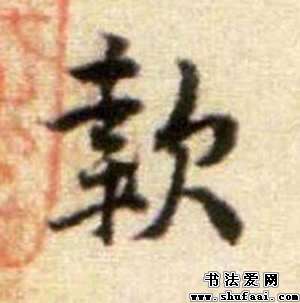 款
书法爱网
www.shufaai.com